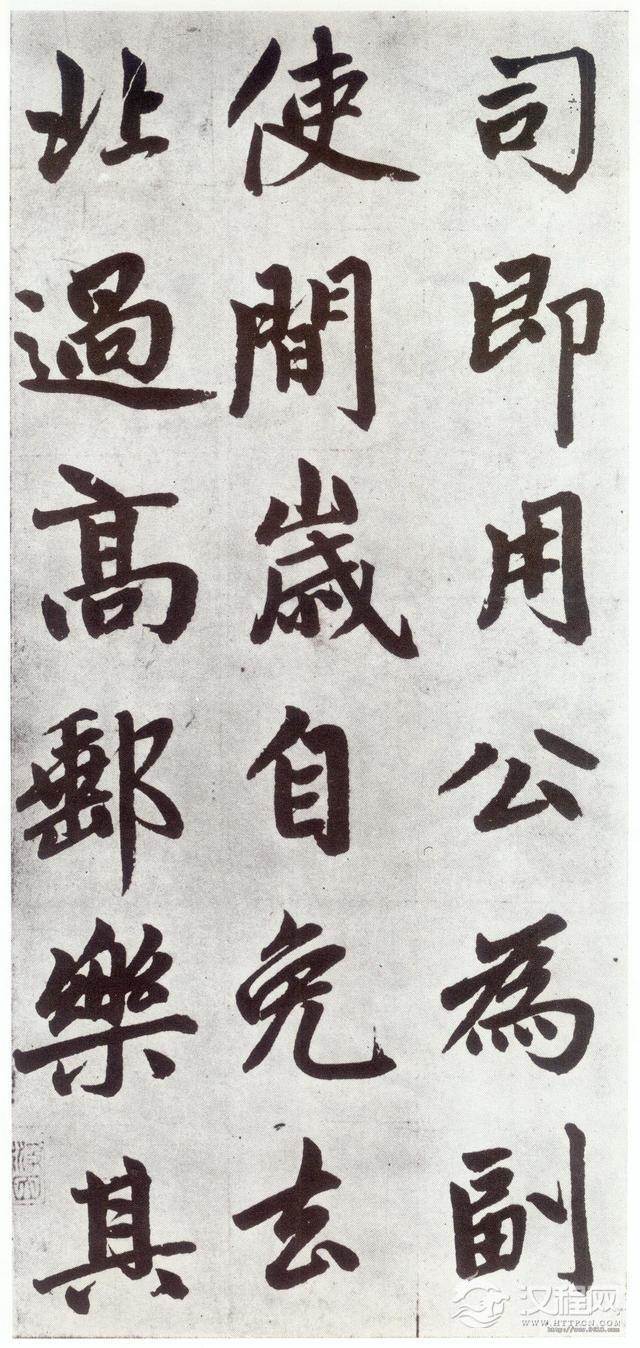 司即用公為副
使間歲自免去
北過高郵樂其
汉程网
WWW.HTTPCN.COM